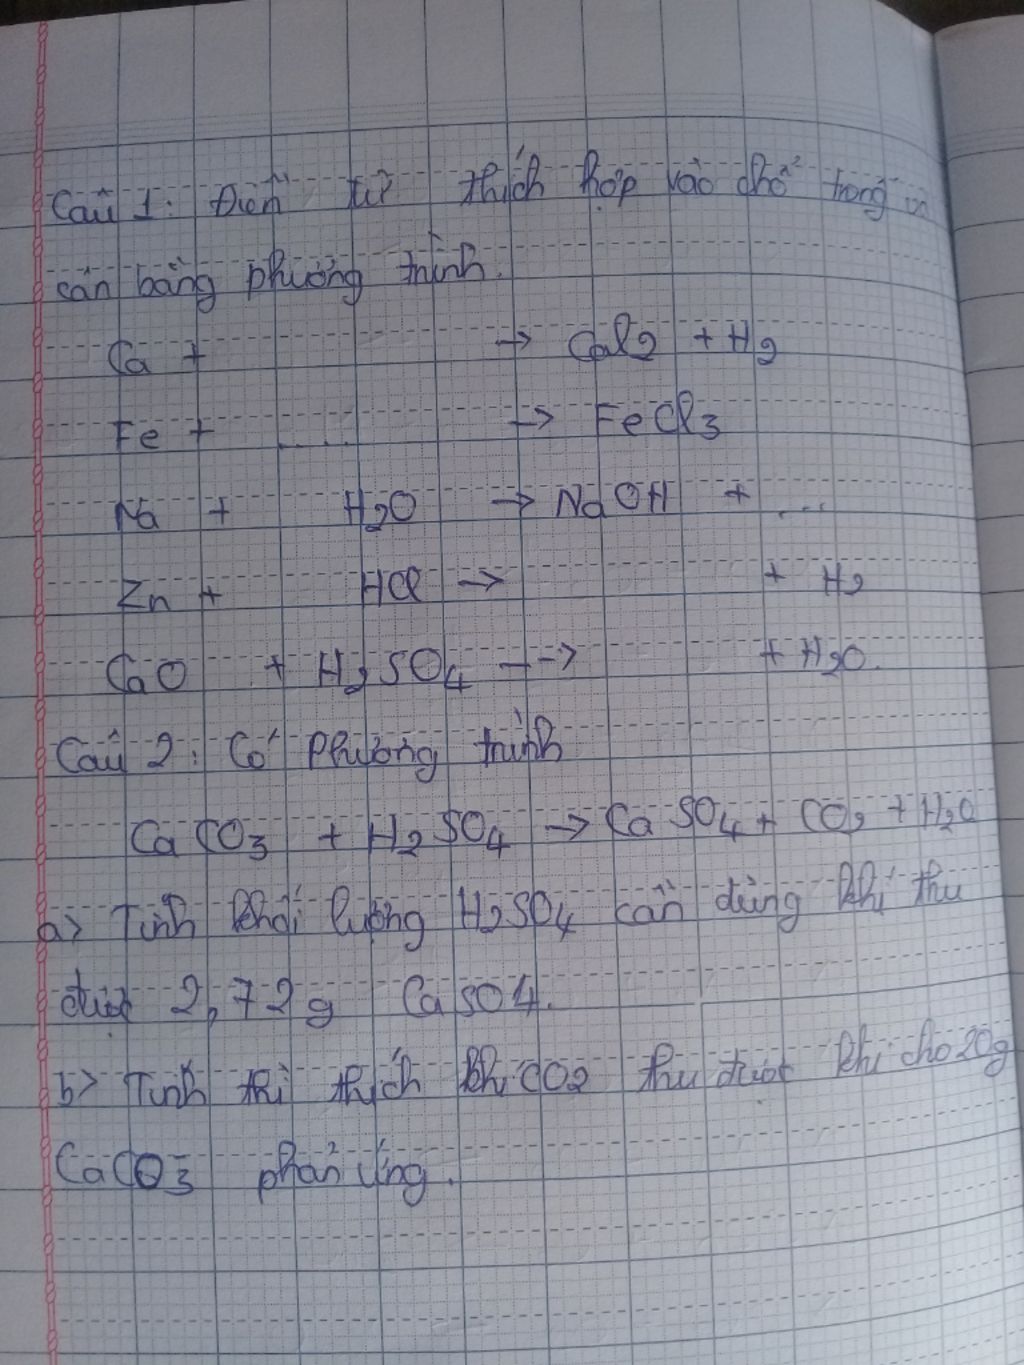 Câu 1: Điền từ thích hợp vào chỗ trong và
cân bằng phương trình.
Ca + → CaCl2 + H2
Fe + ...... → FeCl3
Na + H2O → NaOH + ....
Zn + HCl → + H2
CaO + H2SO4 --> + H2O.
Câu 2: Có phương trình
CaCO3 + H2SO4 → CaSO4 + CO2 + H2O
a> Tính khối lượng H2SO4 cần dùng khi thu
được 2,72g CaSO4.
b> Tính thì thích khí CO2 thu được khi cho 20g
CaCO3 phản ứng.